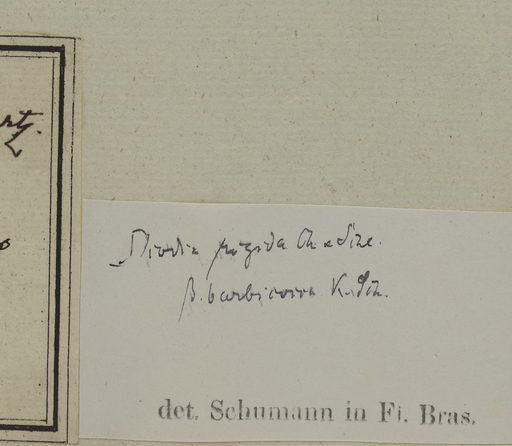 rtz.
Diodia rigida Ch. et Schl.
β. barbicoma K. Sch.
det. Schumann in Fl. Bras.